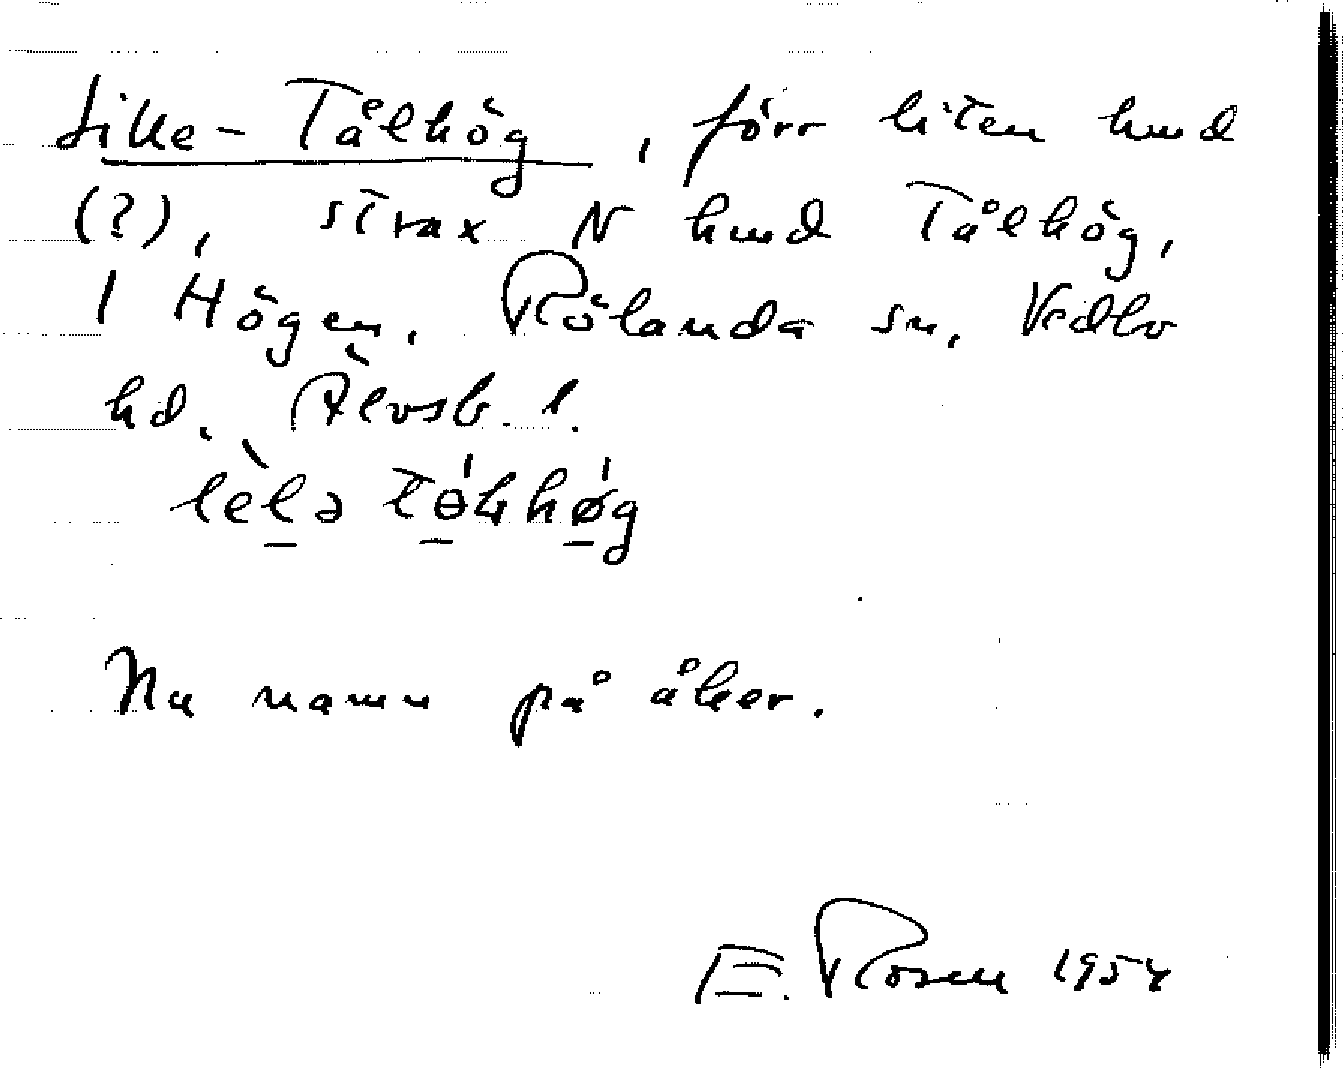 Lille-Tålhög, förr liten hmd
(?), strax N hmd Tålhög,
i Högen. Rölanda sn, Vedbo
hd. Älvsb. l.
Nu namn på åker.
E. Rosen 1954